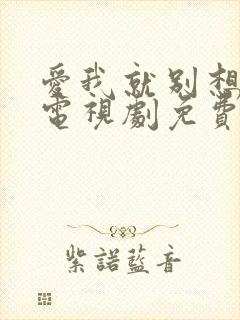 愛我就別想
電視劇免費
紫諾藍音